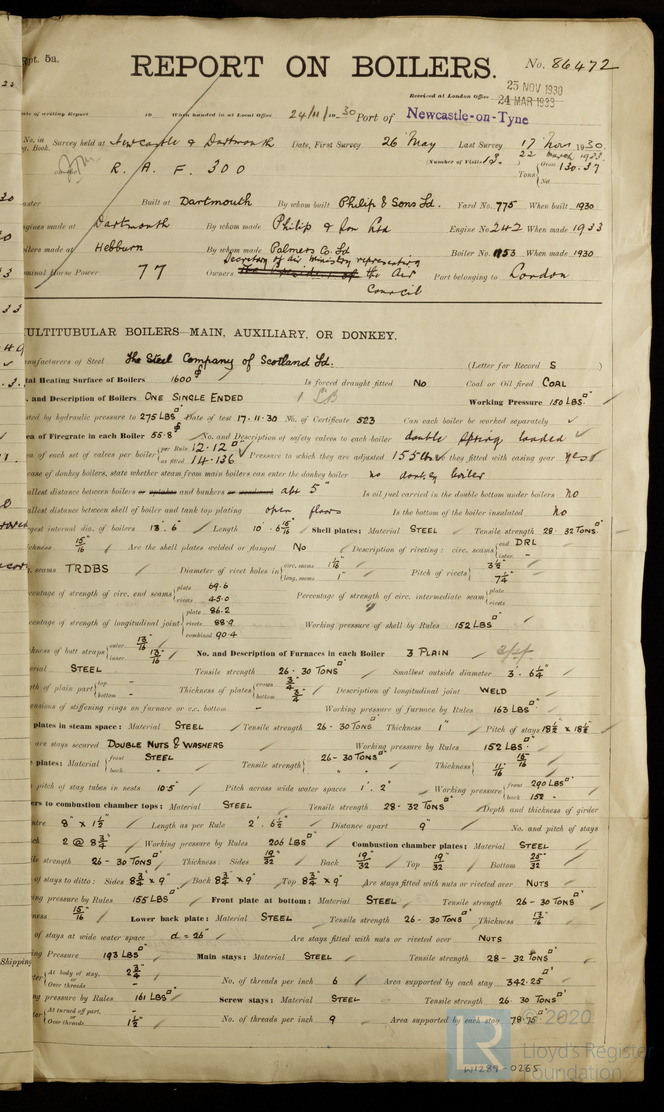 Rpt. 5a.
REPORT ON BOILERS.
No. 86472
25 NOV 1930
Received at London Office 24 MAR 1933
ate of writing Report 19 When handed in at Local Office 24/11/19 30 Port of Newcastle-on-Tyne
No. in Survey held at Newcastle & Dartmouth Date, First Survey 26 May Last Survey 17 Nov 1930
g. Book. 22 March 1933
on the R. A. F. 300 (Number of Visits 13. Tons Gross 130.37
Net
aster Built at Dartmouth By whom built Philip & Sons Ld. Yard No. 775 When built 1930
ngines made at Dartmouth By whom made Philip & Son Ltd Engine No. 242 When made 1933
oilers made at Hebburn By whom made Palmers Co. Ld Boiler No. 1153 When made 1930
Secretary of Air Ministry representing
ominal Horse Power 77 Owners the Air Port belonging to London
Council
ULTITUBULAR BOILERS—MAIN, AUXILIARY, OR DONKEY.
anufacturers of Steel The Steel Company of Scotland Ld. (Letter for Record S )
tal Heating Surface of Boilers 1600 Is forced draught fitted No Coal or Oil fired COAL
. and Description of Boilers ONE SINGLE ENDED 1 SB Working Pressure 150 LBS.
sted by hydraulic pressure to 275 LBS Date of test 17.11.30 No. of Certificate 523 Can each boiler be worked separately ✓
ea of Firegrate in each Boiler 55.8 No. and Description of safety valves to each boiler double spring loaded ✓
ea of each set of valves per boiler per Rule 12.12 as fitted 14.136 Pressure to which they are adjusted 155 lbs Are they fitted with easing gear yes
case of donkey boilers, state whether steam from main boilers can enter the donkey boiler no donkey boiler
allest distance between boilers or uptakes and bunkers or woodwork abt 5" Is oil fuel carried in the double bottom under boilers no
allest distance between shell of boiler and tank top plating open floors Is the bottom of the boiler insulated no
rgest internal dia. of boilers 13'. 6" Length 10'. 6 15/16" Shell plates: Material STEEL Tensile strength 28-32 TONS
ickness 15/16" Are the shell plates welded or flanged No Description of riveting: circ. seams end DRL
inter. -
g. seams TRDBS Diameter of rivet holes in circ. seams 1 1/16 long. seams 1" Pitch of rivets 3 1/2" 7 1/4"
centage of strength of circ. end seams plate 69.6 rivets 45.0 Percentage of strength of circ. intermediate seam plate rivets
centage of strength of longitudinal joint plate 86.2 rivets 88.9 combined 90.4 Working pressure of shell by Rules 152 LBS
ickness of butt straps outer 13/16 inner 13/16 No. and Description of Furnaces in each Boiler 3 PLAIN
erial STEEL Tensile strength 26-30 TONS Smallest outside diameter 3'. 6 1/4"
gth of plain part top - bottom - Thickness of plates crown 3/4 bottom 3/4 Description of longitudinal joint WELD
ensions of stiffening rings on furnace or c.c. bottom - Working pressure of furnace by Rules 163 LBS
plates in steam space: Material STEEL Tensile strength 26-30 TONS Thickness 1" Pitch of stays 18 1/2" x 18 1/2"
are stays secured DOUBLE NUTS & WASHERS Working pressure by Rules 152 LBS
e plates: Material front STEEL back " Tensile strength 26-30 TONS " " Thickness 15/16 11/16
pitch of stay tubes in nests 10.5 Pitch across wide water spaces 1'. 2" Working pressure front 290 LBS back 152 "
ers to combustion chamber tops: Material STEEL Tensile strength 28-32 TONS Depth and thickness of girder
ntre 8" x 1 1/2" Length as per Rule 2'. 6 1/2" Distance apart 9" No. and pitch of stays
ch 2 @ 8 3/4" Working pressure by Rules 206 LBS Combustion chamber plates: Material STEEL
ile strength 26-30 TONS Thickness: Sides 19/32 Back 19/32 Top 19/32 Bottom 25/32
of stays to ditto: Sides 8 3/4" x 9" Back 8 3/4" x 9" Top 8 3/4" x 9" Are stays fitted with nuts or riveted over NUTS
ing pressure by Rules 155 LBS Front plate at bottom: Material STEEL Tensile strength 26-30 TONS
ness 15/16" Lower back plate: Material STEEL Tensile strength 26-30 TONS Thickness 13/16"
of stays at wide water space d = 26" Are stays fitted with nuts or riveted over NUTS
ing Pressure 193 LBS Main stays: Material STEEL Tensile strength 28-32 TONS
ter At body of stay, or Over threads 2 3/4" - No. of threads per inch 6 Area supported by each stay 342.25
ng pressure by Rules 161 LBS Screw stays: Material STEEL Tensile strength 26.30 TONS
ter At turned off part, or Over threads - 1 1/2" No. of threads per inch 9 Area supported by each stay 78.75
Shipping
LR
© 2020
Lloyd's Register
Foundation
W1289-0265